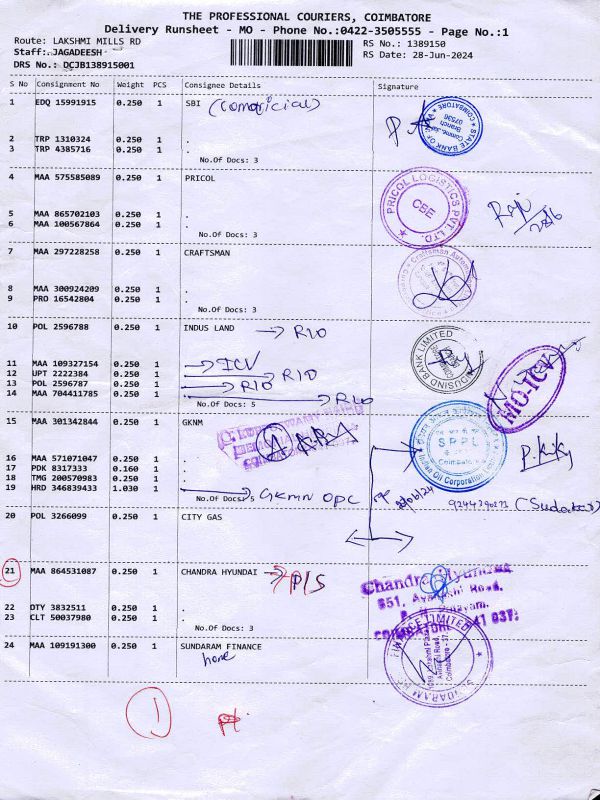 THE PROFESSIONAL COURIERS, COIMBATORE
Delivery Runsheet - MO - Phone No.:0422-3505555 - Page No.:1
Route: LAKSHMI MILLS RD
RS No.: 1389150
Staff:.JAGADEESH
RS Date: 28-Jun-2024
DRS No.: DCJB138915001
S No Consignment No Weight PCS Consignee Details Signature
1 EDQ 15991915 0.250 1 SBI
STATE BANK OF
Branch
07536
COIMBATORE
2 TRP 1310324 0.250 1 .
3 TRP 4385716 0.250 1 .
No.Of Docs: 3
4 MAA 575585089 0.250 1 PRICOL
PRICOL LOGISTICS PVT. LTD.
CBE
Raju
28/6
5 MAA 865702103 0.250 1 .
6 MAA 100567864 0.250 1 .
No.Of Docs: 3
7 MAA 297228258 0.250 1 CRAFTSMAN
Craftsman
8 MAA 300924209 0.250 1 .
9 PRO 16542804 0.250 1 .
No.Of Docs: 3
10 POL 2596788 0.250 1 INDUS LAND → R10
INDUSIND BANK LIMITED
11 MAA 109327154 0.250 1 → ICV
12 UPT 2222384 0.250 1 → R10
13 POL 2596787 0.250 1 → R10
14 MAA 704411785 0.250 1 → R10
No.Of Docs: 5
MO-ICV
15 MAA 301342844 0.250 1 GKNM
SRPL
Coimbatore
Indian Oil Corporation
16 MAA 571071047 0.250 1 .
17 PDK 8317333 0.160 1 .
18 TMG 200570983 0.250 1 .
19 HRD 346839433 1.030 1
No.Of Docs: 5 GKMN OPC
20 POL 3266099 0.250 1 CITY GAS
21 MAA 864531087 0.250 1 CHANDRA HYUNDAI → P/S
Chandra Hyundai
951, Avanashi Road,
22 DTY 3832511 0.250 1 .
23 CLT 50037980 0.250 1 .
No.Of Docs: 3
COIMBATORE
24 MAA 109191300 0.250 1 SUNDARAM FINANCE
Avinashi Road,
Coimbatore - 37.
1